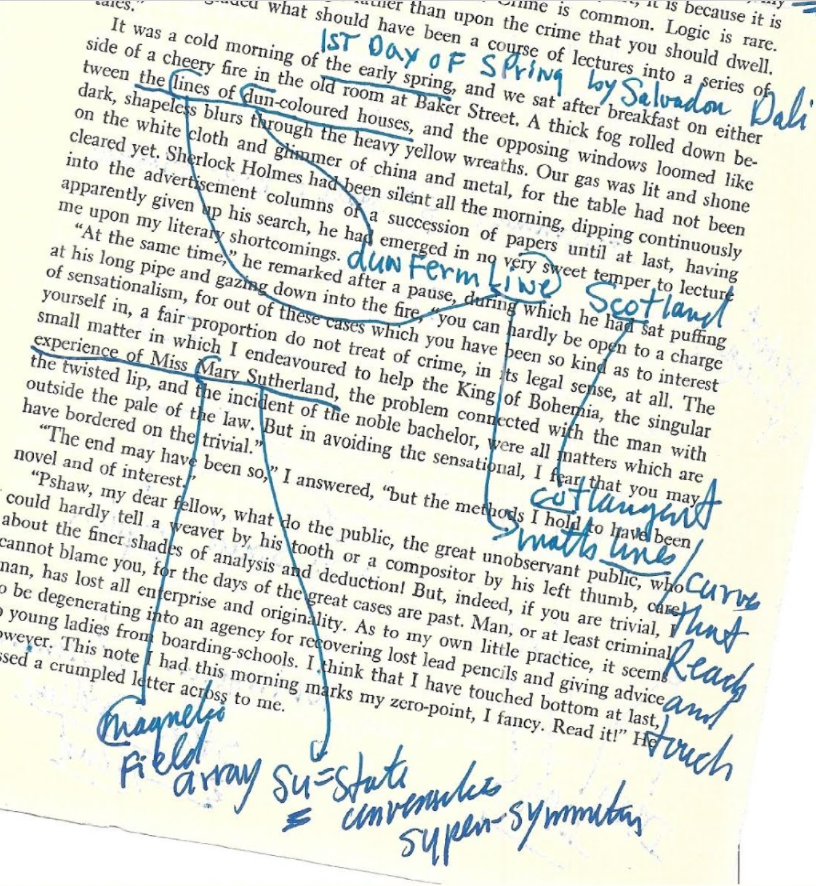 tales."
than upon the crime that you should dwell.
what should have been a course of lectures into a series of
It was a cold morning of the early spring, and we sat after breakfast on either
side of a cheery fire in the old room at Baker Street. A thick fog rolled down be-
tween the lines of dun-coloured houses, and the opposing windows loomed like
dark, shapeless blurs through the heavy yellow wreaths. Our gas was lit and shone
on the white cloth and glimmer of china and metal, for the table had not been
cleared yet. Sherlock Holmes had been silent all the morning, dipping continuously
into the advertisement columns of a succession of papers until at last, having
apparently given up his search, he had emerged in no very sweet temper to lecture
me upon my literary shortcomings.
"At the same time," he remarked after a pause, during which he had sat puffing
at his long pipe and gazing down into the fire, "you can hardly be open to a charge
of sensationalism, for out of these cases which you have been so kind as to interest
yourself in, a fair proportion do not treat of crime, in its legal sense, at all. The
small matter in which I endeavoured to help the King of Bohemia, the singular
experience of Miss Mary Sutherland, the problem connected with the man with
the twisted lip, and the incident of the noble bachelor, were all matters which are
outside the pale of the law. But in avoiding the sensational, I fear that you may
have bordered on the trivial."
"The end may have been so," I answered, "but the methods I hold to have been
novel and of interest."
"Pshaw, my dear fellow, what do the public, the great unobservant public, who
could hardly tell a weaver by his tooth or a compositor by his left thumb, care
about the finer shades of analysis and deduction! But, indeed, if you are trivial, I
cannot blame you, for the days of the great cases are past. Man, or at least criminal
man, has lost all enterprise and originality. As to my own little practice, it seems
to be degenerating into an agency for recovering lost lead pencils and giving advice
to young ladies from boarding-schools. I think that I have touched bottom at last,
however. This note I had this morning marks my zero-point, I fancy. Read it!" He
ssed a crumpled letter across to me.
1ST DAY OF SPRING by Salvador Dali
dunfermLine Scotland
cotangent
maths lines/curves
that
Reach
and
touch
magnetic
Field
array Su=State
super-symmetry